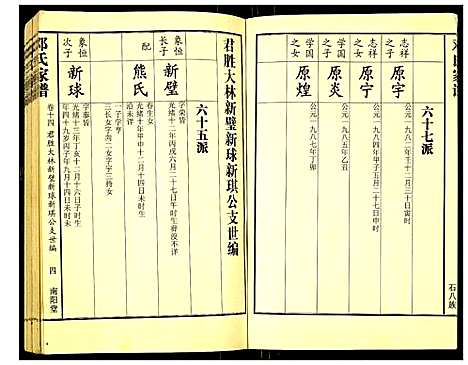 六十七派
志祥之子
原宇
公元一九八二年壬十二月三十日寅时
志祥之女
原宁
公元一九八四年甲子五月二十一日
学国之子
原炎
公元一九八五年乙丑
学国之女
原煌
公元一九八七年丁卯
石八族
君胜大林新璧新球新琪公支世编
六十五派
象恒长子
新璧
字荣皆
光绪十二年丙戌六月二十七日午时生
没不详
配
熊氏
春生女
光绪十年甲申十二月十四日午时生
没未详
一子字亨
三长女字二女字字三待女
象恒次子
新球
字泰皆
光绪十三年丁亥十二月十六日子时生
年四十九岁丙子年九月十四日未时没
邓氏家谱
卷十四
君胜大林新璧新球新琪公支世编
四
南阳堂